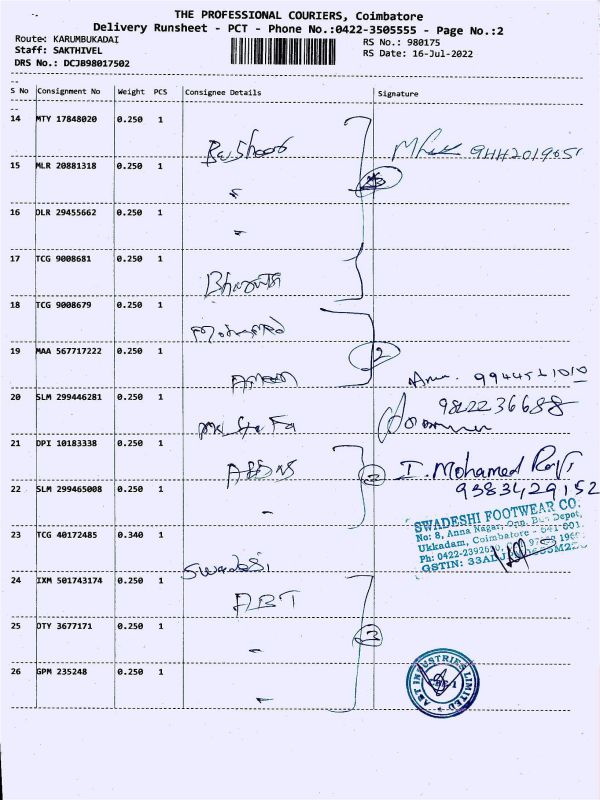 THE PROFESSIONAL COURIERS, Coimbatore
Delivery Runsheet - PCT - Phone No.:0422-3505555 - Page No.:2
Route: KARUMBUKADAI
RS No.: 980175
Staff: SAKTHIVEL
RS Date: 16-Jul-2022
DRS No.: DCJB98017502
S No Consignment No Weight PCS Consignee Details Signature
14 MTY 17848020 0.250 1
15 MLR 20881318 0.250 1
16 DLR 29455662 0.250 1
17 TCG 9008681 0.250 1
18 TCG 9008679 0.250 1
Mohamed
19 MAA 567717222 0.250 1
2
20 SLM 299446281 0.250 1
9822236688
21 DPI 10183338 0.250 1
I. Mohamed
2
9383429152
22 SLM 299465008 0.250 1
SWADESHI FOOTWEAR CO.
No: 8, Anna Nagar, Opp. Bus Depot,
Ukkadam, Coimbatore - 641 001.
23 TCG 40172485 0.340 1
Ph: 0422-2392690,
GSTIN:
Swadesi
24 IXM 501743174 0.250 1
ABT
25 OTY 3677171 0.250 1
3
26 GPM 235248 0.250 1
ABT INDUSTRIES LIMITED